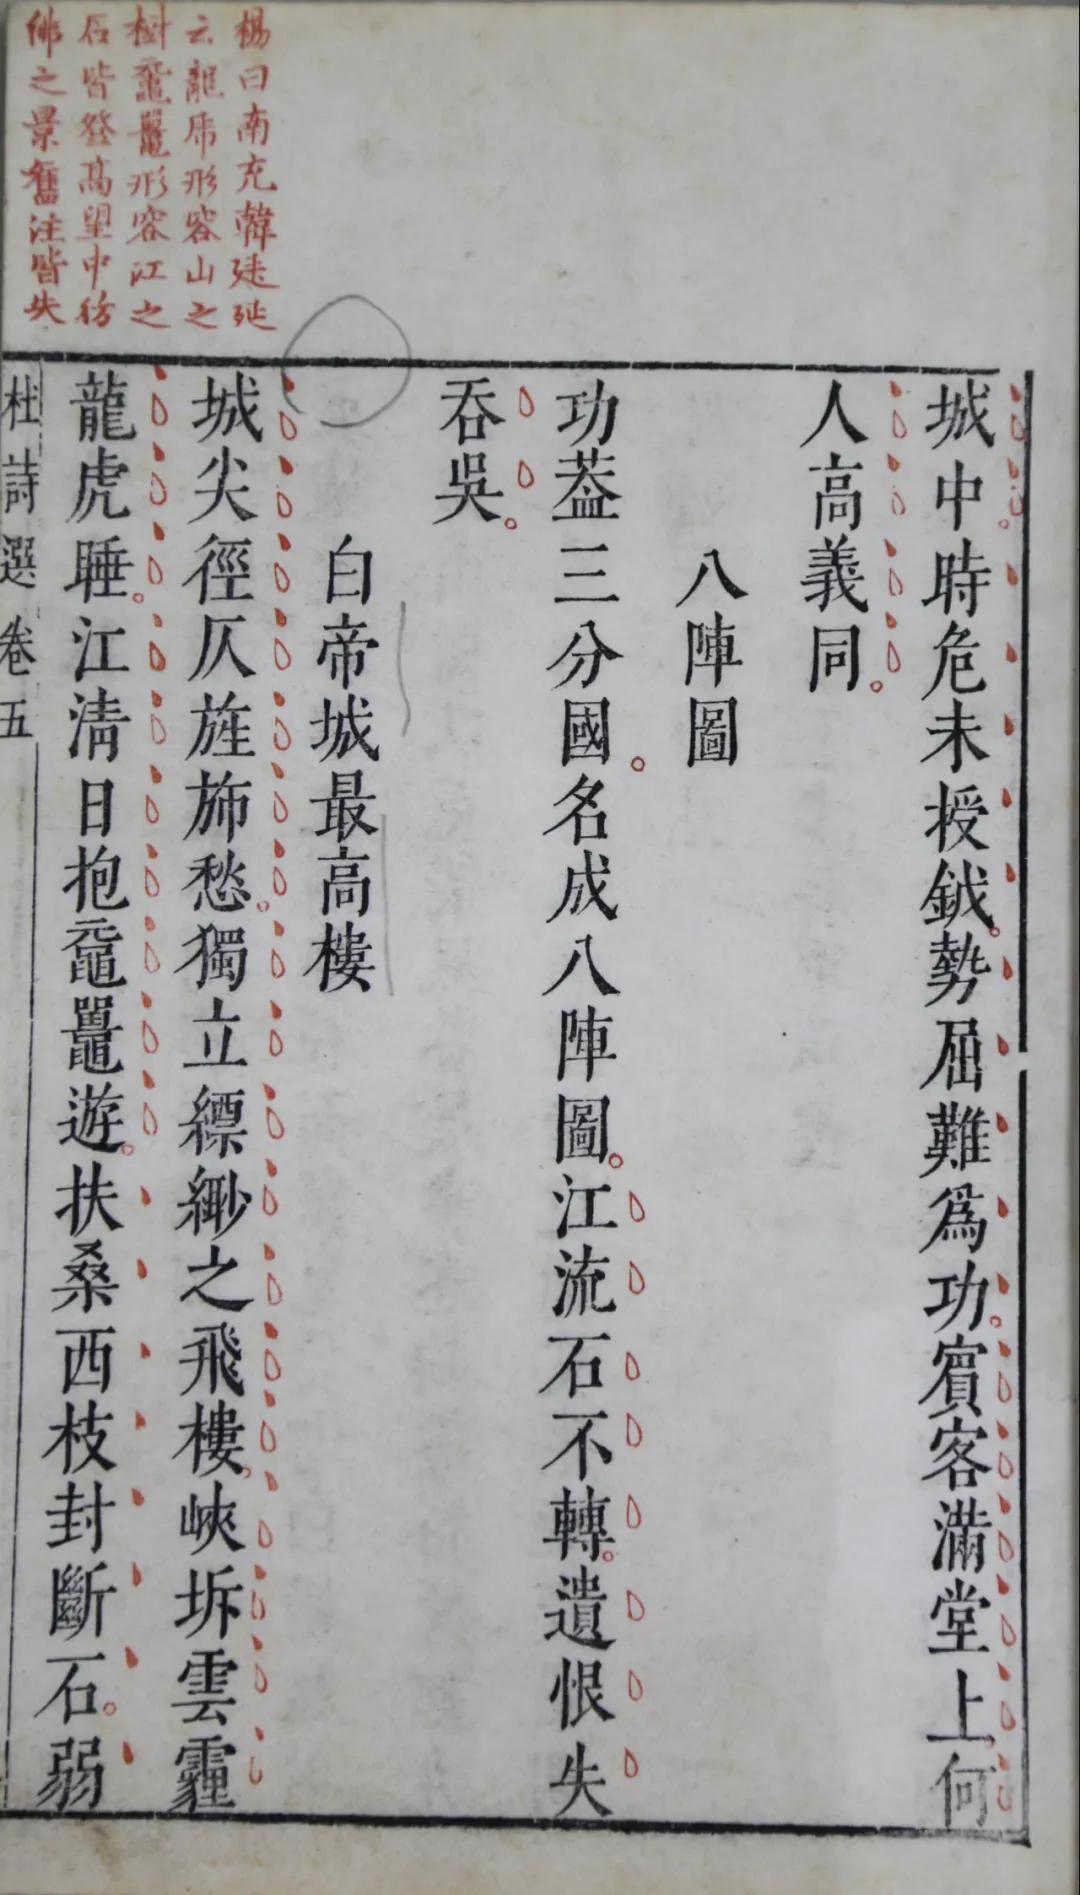 楊曰南充韓廷延
云龍虎形容山之
樹黿鼉形容江之
石皆登高望中彷
彿之景舊注皆失
城中。時危未授鉞。勢屈難爲功。賔客滿堂上何
人高義同。
八陣圖
功葢三分國。名成八陣圖。江流石不轉。遺恨失
吞吳。
白帝城最高樓
城尖徑仄旌斾愁。獨立縹緲之飛樓。峽坼雲霾
龍虎睡。江清日抱黿鼉遊。扶桑西枝封斷石。弱
杜詩選卷五